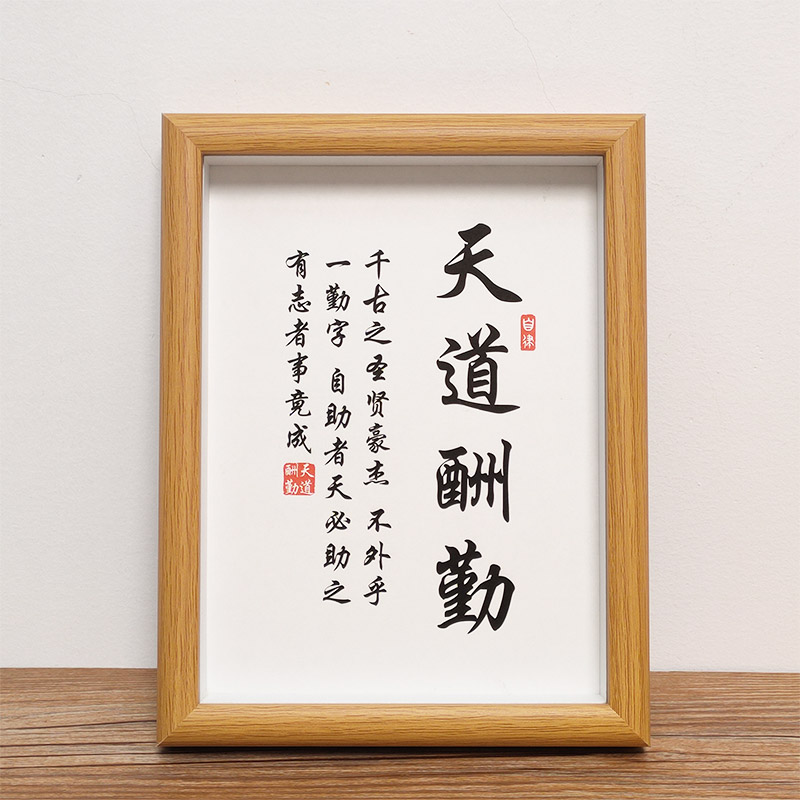 天道酬勤
自律
千古之圣贤豪杰 不外乎
一勤字 自助者天必助之
有志者事竟成
天道
酬勤